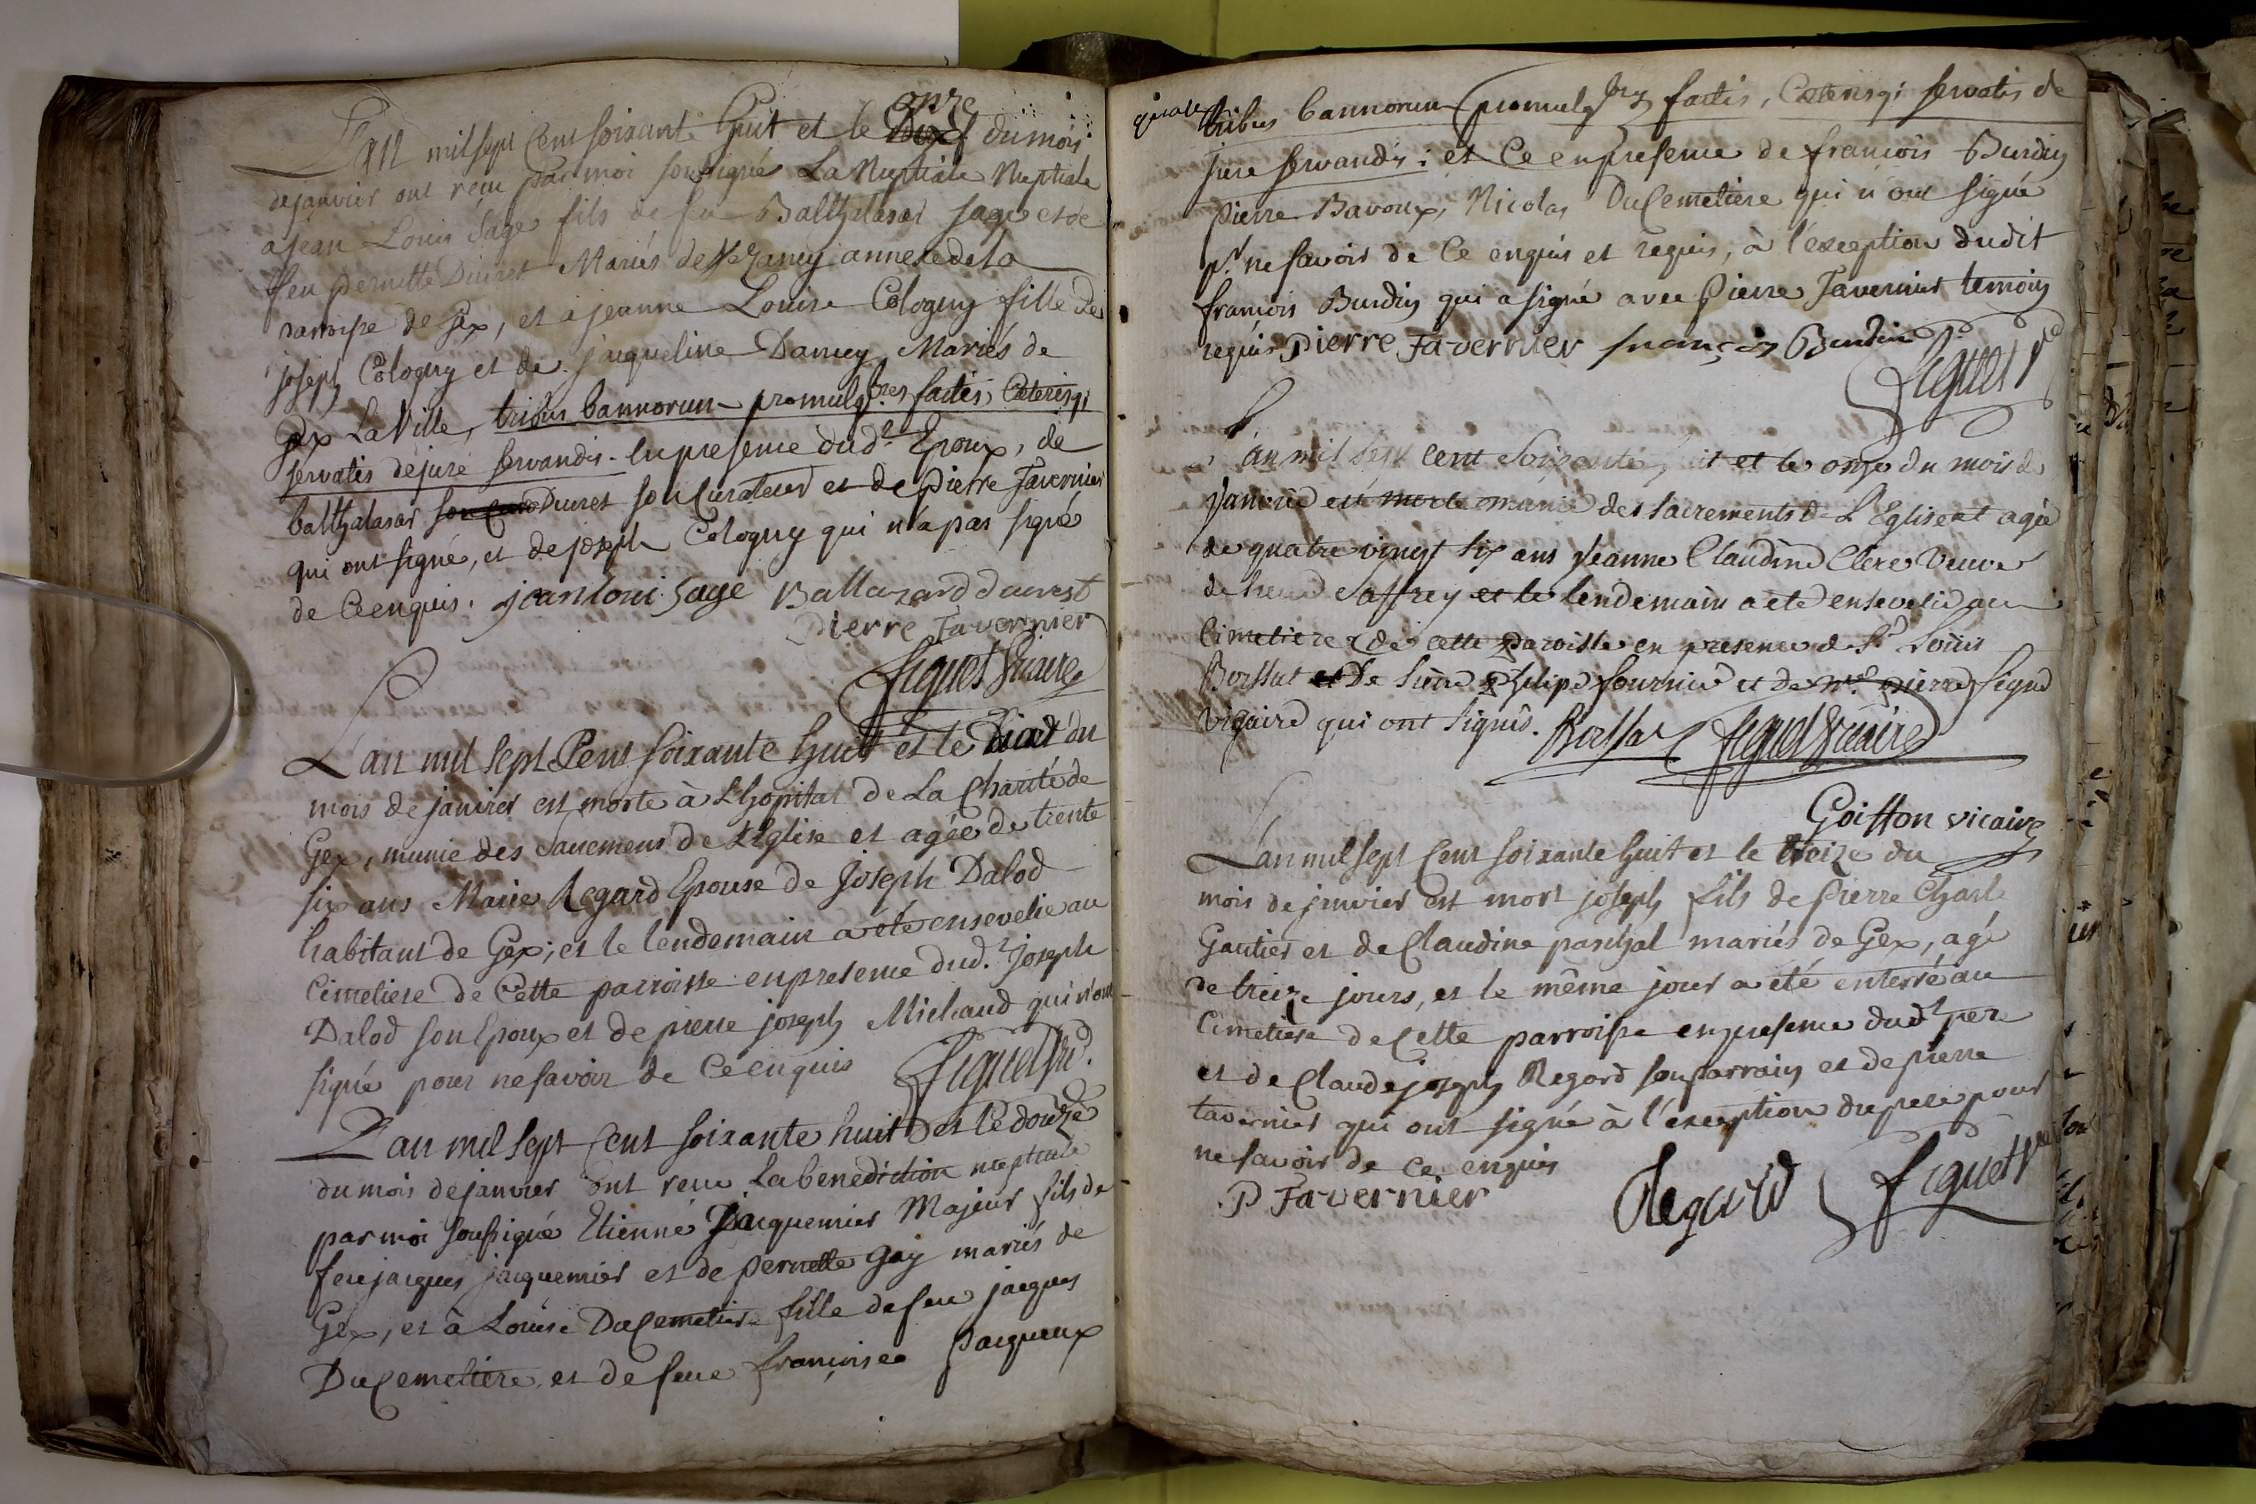 onze
L'an mil sept Cent soixante huit et le du mois
de janvier ont recu par moi soussigné La Nuptiale Nuptiale
a jean Louis Sage fils de feu Balthalasar sage et de
feu pernette Ducret Mariés de Vezancy annexe de la
parroisse de Gex, et a jeanne Louise Cologny fille de
joseph Cologny et de jacqueline Dancey Mariés de
Gex La Ville, tribus bannorum promulg.bres factis, Coeterisq;
servatis de jure servandis. en presence dud.t Epoux, de
balthalasar Ducret son Curateur et de Pierre Tavernier
qui ont signé, et de joseph Cologny qui n'a pas signé
de Ce enquis. jean loui Sage Baltazard ducrest
Pierre Tavernier
Figuet Vicaire
L'an mil sept Cent soixante huit et le du
mois de janvier est morte à L'hopital de La Charité de
Gex, munie des Sacremens de L'Eglise et agée de trente
six ans Marie Regard Epouse de Joseph Dalod
habitant de Gex; et le lendemain a été ensevelie au
Cimetiere de Cette parroisse en presence dud.t Joseph
Dalod son Epoux et de pierre joseph Michaud qui n'ont
signé pour ne savoir de Ce enquis Figuet Vic.
L'an mil sept Cent soixante huit et le douze
du mois de janvier ont recu La benediction nuptiale
par moi soussigné Etienne Jacquemier Majeur fils de
feu jacques jacquemier et de pernette Gay mariés de
Gex, et à Louise DuCemetiere fille de feu jacques
DuCemetiere et de feue francoise Pacqueux
tribus bannorum promulg.bus factis, Coeterisq; servatis de
jure servandis: et Ce en presence de francois Burdin
pierre Bavoux, Nicolas DuCemetiere qui n'ont signé
p.r ne savoir de Ce enquis et requis, à l'exception dudit
francois Burdin qui a signé avec Pierre Tavernier temoin
requis Pierre Tavernier françois Burdin
Figuet V.re
L'an mil sept cent soixante huit et le onze du mois de
Janvier est morte munie des sacrements de L'Eglise et agée
de quatre vingt six ans Jeanne Claudine Clerc Veuve
de et le lendemain a été ensevelie au
Cimetiere de cette paroisse en presence de S.r Louis
Borssat et de Philipe fournier et de pierre figuet
Vicaire qui ont signés. Borssat Figuet Vicaire
Goiffon vicaire
L'an mil sept Cent soixante huit et le treize du
mois de janvier est mort joseph fils de Pierre Charle
Gautier et de Claudine paschal mariés de Gex, agé
de treize jours, et le même jour a été enterré au
Cimetiere de Cette parroisse en presence dud.t pere
et de Claude joseph Regard son parrain et de pierre
tavernier qui ont signé à l'exception du pere pour
ne savoir de Ce enquis
P Tavernier Regard Figuet V.re